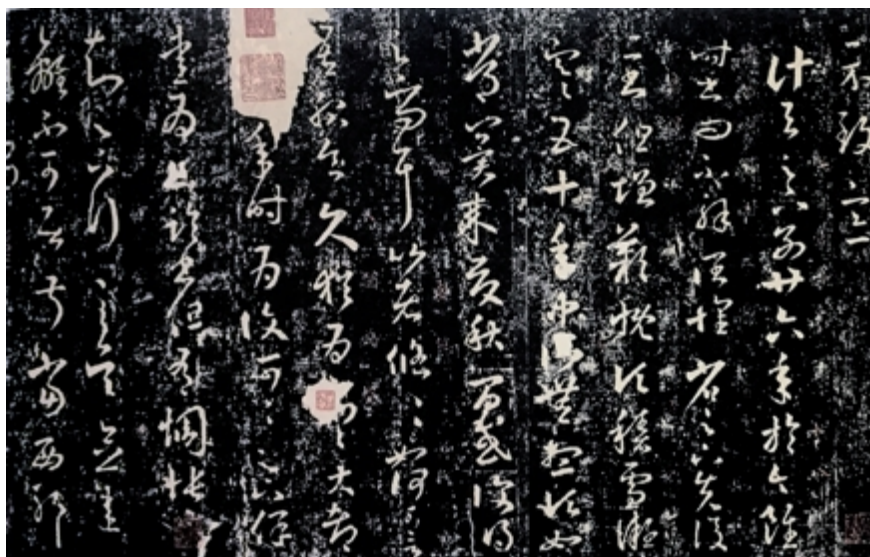 計與足下別廿六年於今雖
時書問不解闊懷省足下先後
二書但增歎慨頃積雪凝
寒五十年中所無想頃如
常冀來夏秋間或復得
足下問耳比者悠悠如何可言
吾服食久猶為劣劣大都
年時為復可可足下保
愛為上臨書但有惆悵
知足下行至吳念違
離不可居叔當西耶